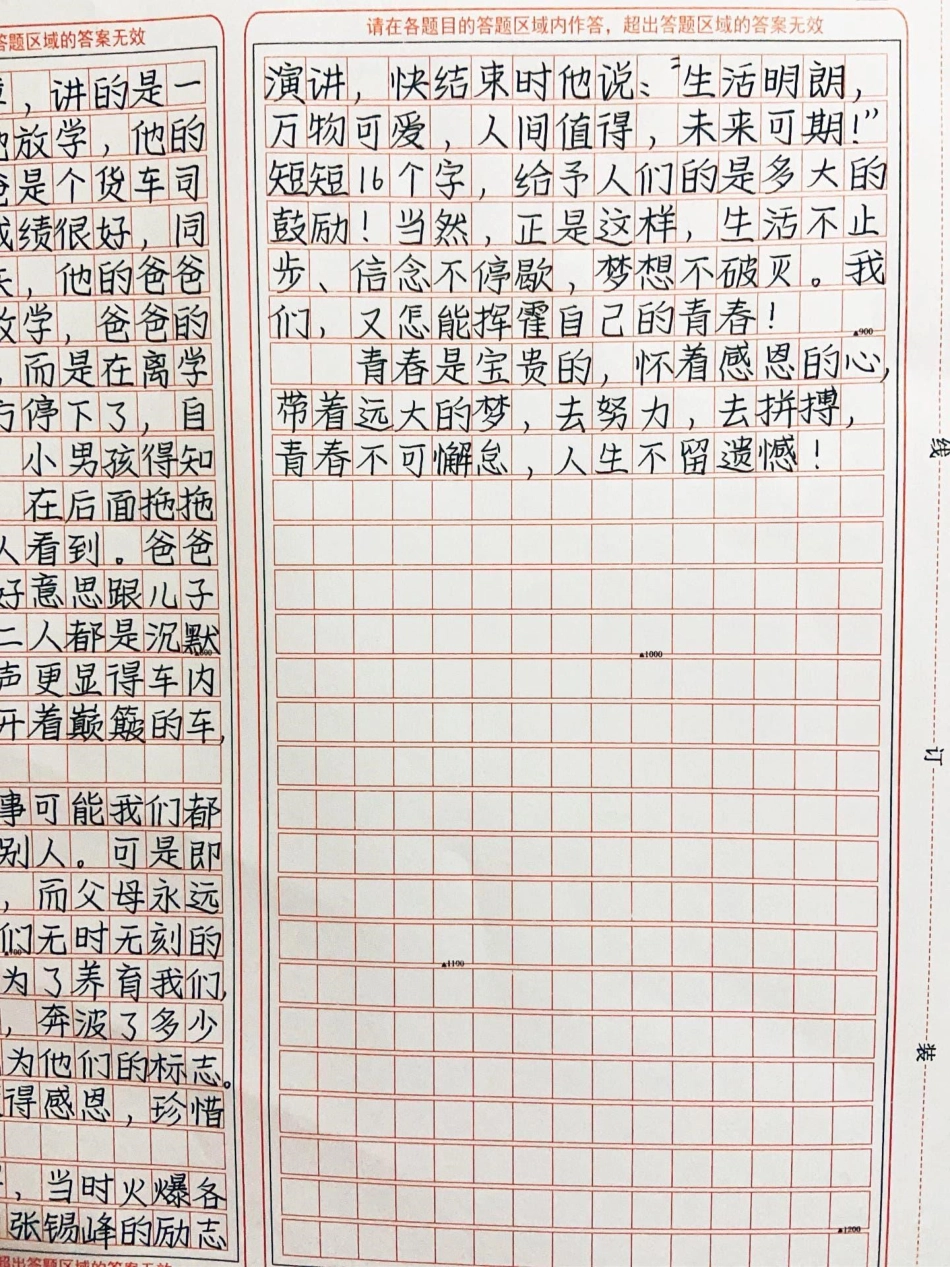 答题区域的答案无效
，讲的是一
放学，他的
爸是个货车司
成绩很好，同
，他的爸爸
放学，爸爸的
，而是在离学
方停下了，自
小男孩得知
在后面拖拖
人看到。爸爸
好意思跟儿子
二人都是沉默
声更显得车内
开着巅簸的车，
事可能我们都
别人。可是即
，而父母永远
们无时无刻的
为了养育我们，
，奔波了多少
为他们的标志。
得感恩，珍惜
，当时火爆各
张锡峰的励志
超出答题区域的答案无效
请在各题目的答题区域内作答，超出答题区域的答案无效
演讲，快结束时他说：“生活明朗，
万物可爱，人间值得，未来可期！”
短短16个字，给予人们的是多大的
鼓励！当然，正是这样，生活不止
步、信念不停歇，梦想不破灭。我
们，又怎能挥霍自己的青春！
▲900
青春是宝贵的，怀着感恩的心，
带着远大的梦，去努力，去拼搏，
青春不可懈怠，人生不留遗憾！
▲1000
▲1100
▲1200
线
订
装